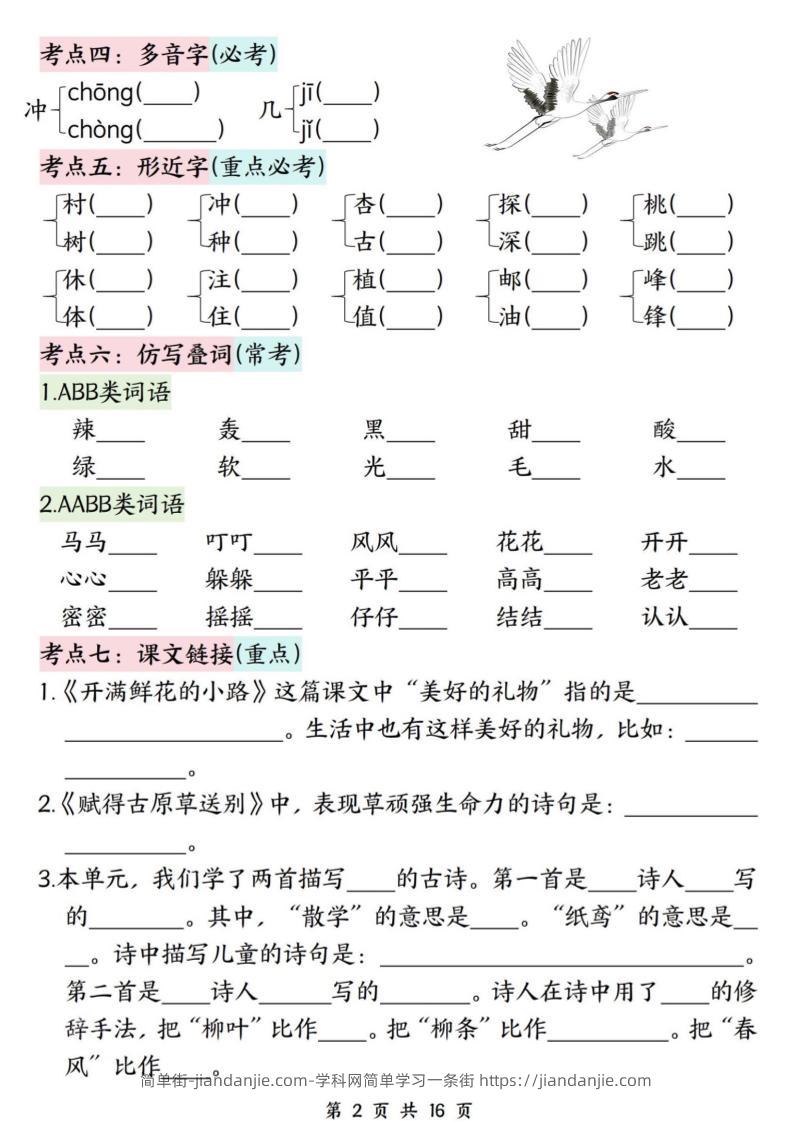 考点四：多音字(必考)
冲 chōng(____) 几 jī(____)
chòng(______) jǐ(____)
考点五：形近字(重点必考)
村(____) 冲(____) 杏(____) 探(____) 桃(____)
树(____) 种(____) 古(____) 深(____) 跳(____)
休(____) 注(____) 植(____) 邮(____) 峰(____)
体(____) 住(____) 值(____) 油(____) 锋(____)
考点六：仿写叠词(常考)
1.ABB类词语
辣____ 轰____ 黑____ 甜____ 酸____
绿____ 软____ 光____ 毛____ 水____
2.AABB类词语
马马____ 叮叮____ 风风____ 花花____ 开开____
心心____ 躲躲____ 平平____ 高高____ 老老____
密密____ 摇摇____ 仔仔____ 结结____ 认认____
考点七：课文链接(重点)
1.《开满鲜花的小路》这篇课文中“美好的礼物”指的是__________
__________________。生活中也有这样美好的礼物，比如：______
__________。
2.《赋得古原草送别》中，表现草顽强生命力的诗句是：___________
__________。
3.本单元，我们学了两首描写____的古诗。第一首是____诗人____写
的________。其中，“散学”的意思是____。“纸鸢”的意思是__
__。诗中描写儿童的诗句是：______________________________。
第二首是____诗人______写的________。诗人在诗中用了____的修
辞手法，把“柳叶”比作____。把“柳条”比作__________。把“春
风”比作____。
简单街-jiandanjie.com-学科网简单学习一条街 https://jiandanjie.com
第 2 页 共 16 页